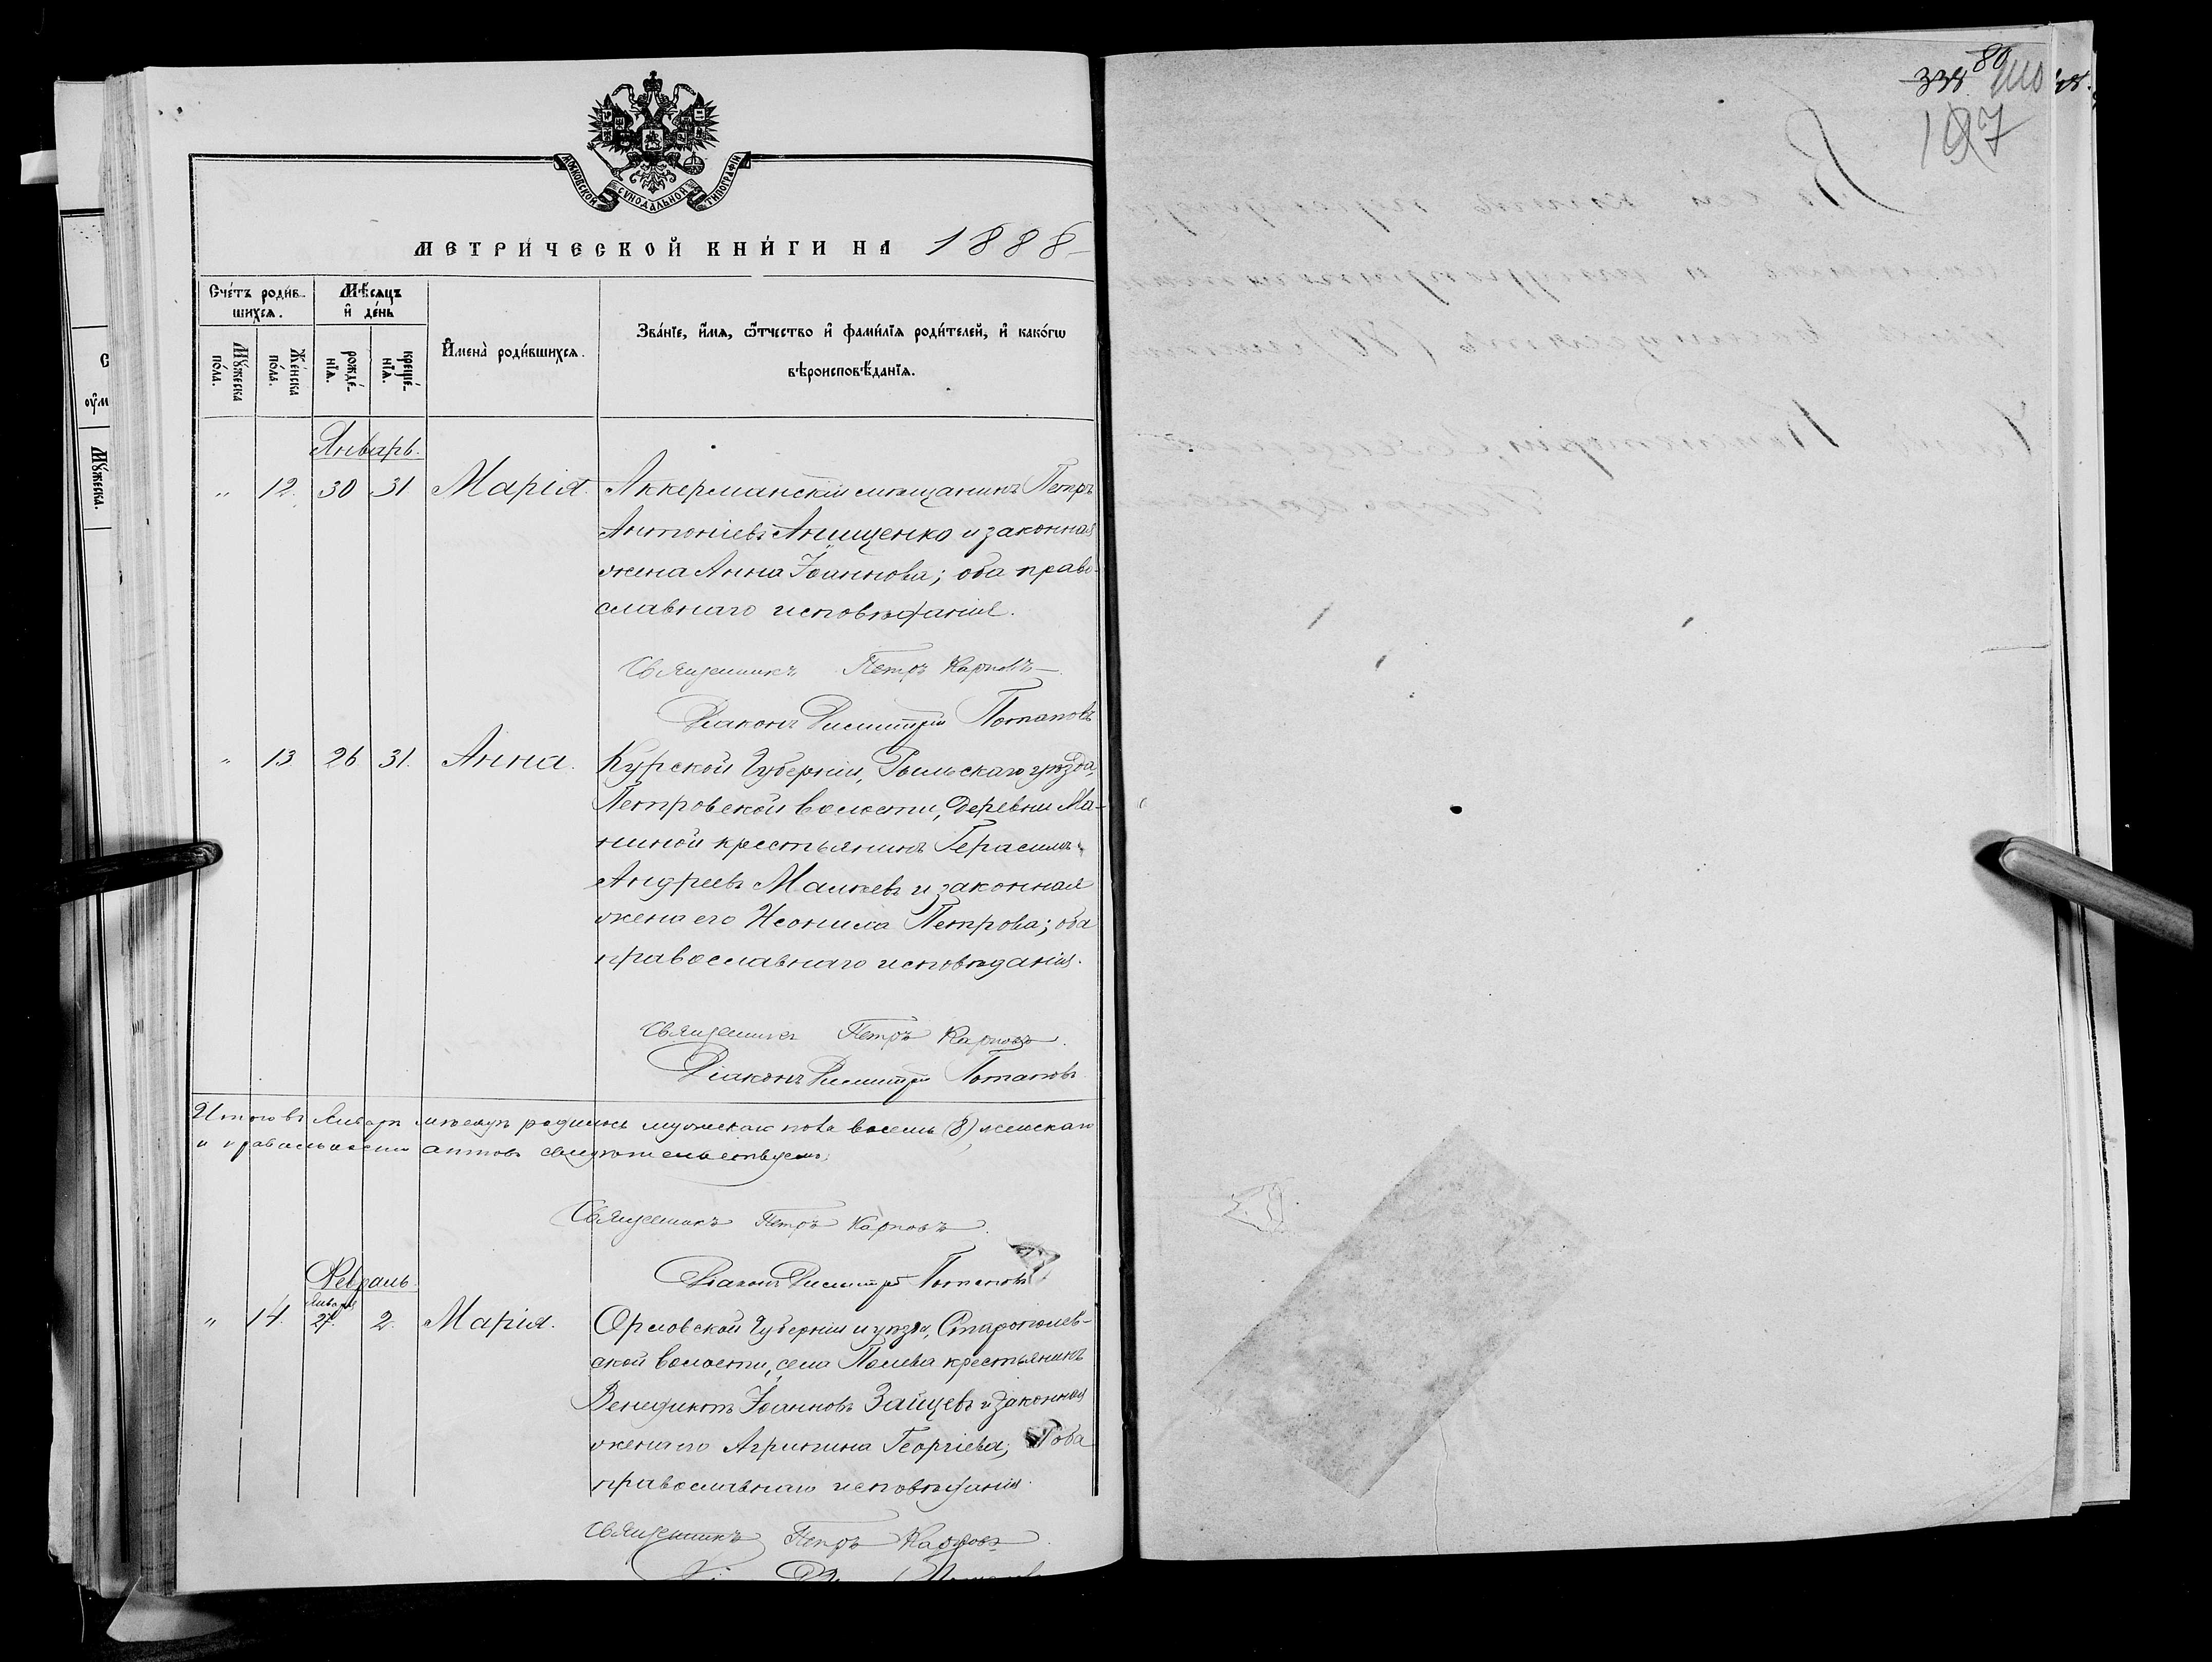 МОСКОВСКОЙ СѴНОДАЛЬНОЙ ТИПОГРАФІИ
МЕТРИ́ЧЕСКОЙ КНИ́ГИ НА 1888
Сче́тъ роди́в-
шихсѧ.
Мѣ́сѧцъ
и҆ де́нь
И҆мена̀ роди́вшихсѧ.
Зва́нїе, и҆́мѧ, ѻ҆́тчество и҆ фами́лїѧ роди́телей, и҆ како́гѡ
вѣроисповѣ́данїѧ.
Мꙋ́жеска
по́ла.
Же́нска
по́ла.
рожде́-
нїѧ.
креще́-
нїѧ.
Январь.
" 12. 30 31. Марія. Аккерманскій мѣщанинъ Петръ
Антоніевъ Анищенко и законная
жена Анна Іоаннова; оба право-
славнаго исповѣданія.
Священникъ Петръ Карповъ
Діаконъ Димитрій Потаповъ
" 13. 26 31. Анна. Курской Губерніи, Рыльскаго уѣзда,
Петровской волости, деревни Ма-
ниной крестьянинъ Герасимъ
Андреевъ и законная
жена его Неонила Петрова; оба
православнаго исповѣданія.
Священникъ Петръ Карповъ.
Діаконъ Димитрій Потаповъ
Итого въ Январѣ мѣсяцѣ родилось мужскаго пола восемь (8) женскаго
и актовъ свидѣтельствуемъ:
Священникъ Петръ Карповъ.
Діаконъ Димитрій Потаповъ
Февраль.
" 14. Января 27. 2. Марія. Орловской Губерніи и уѣзда,
ской волости, села крестьянинъ
Венедиктъ Іоанновъ Зайцевъ и законная
жена его Агрипина Георгіева; оба
православнаго исповѣданія.
Священникъ Петръ Карповъ.
338 80
197